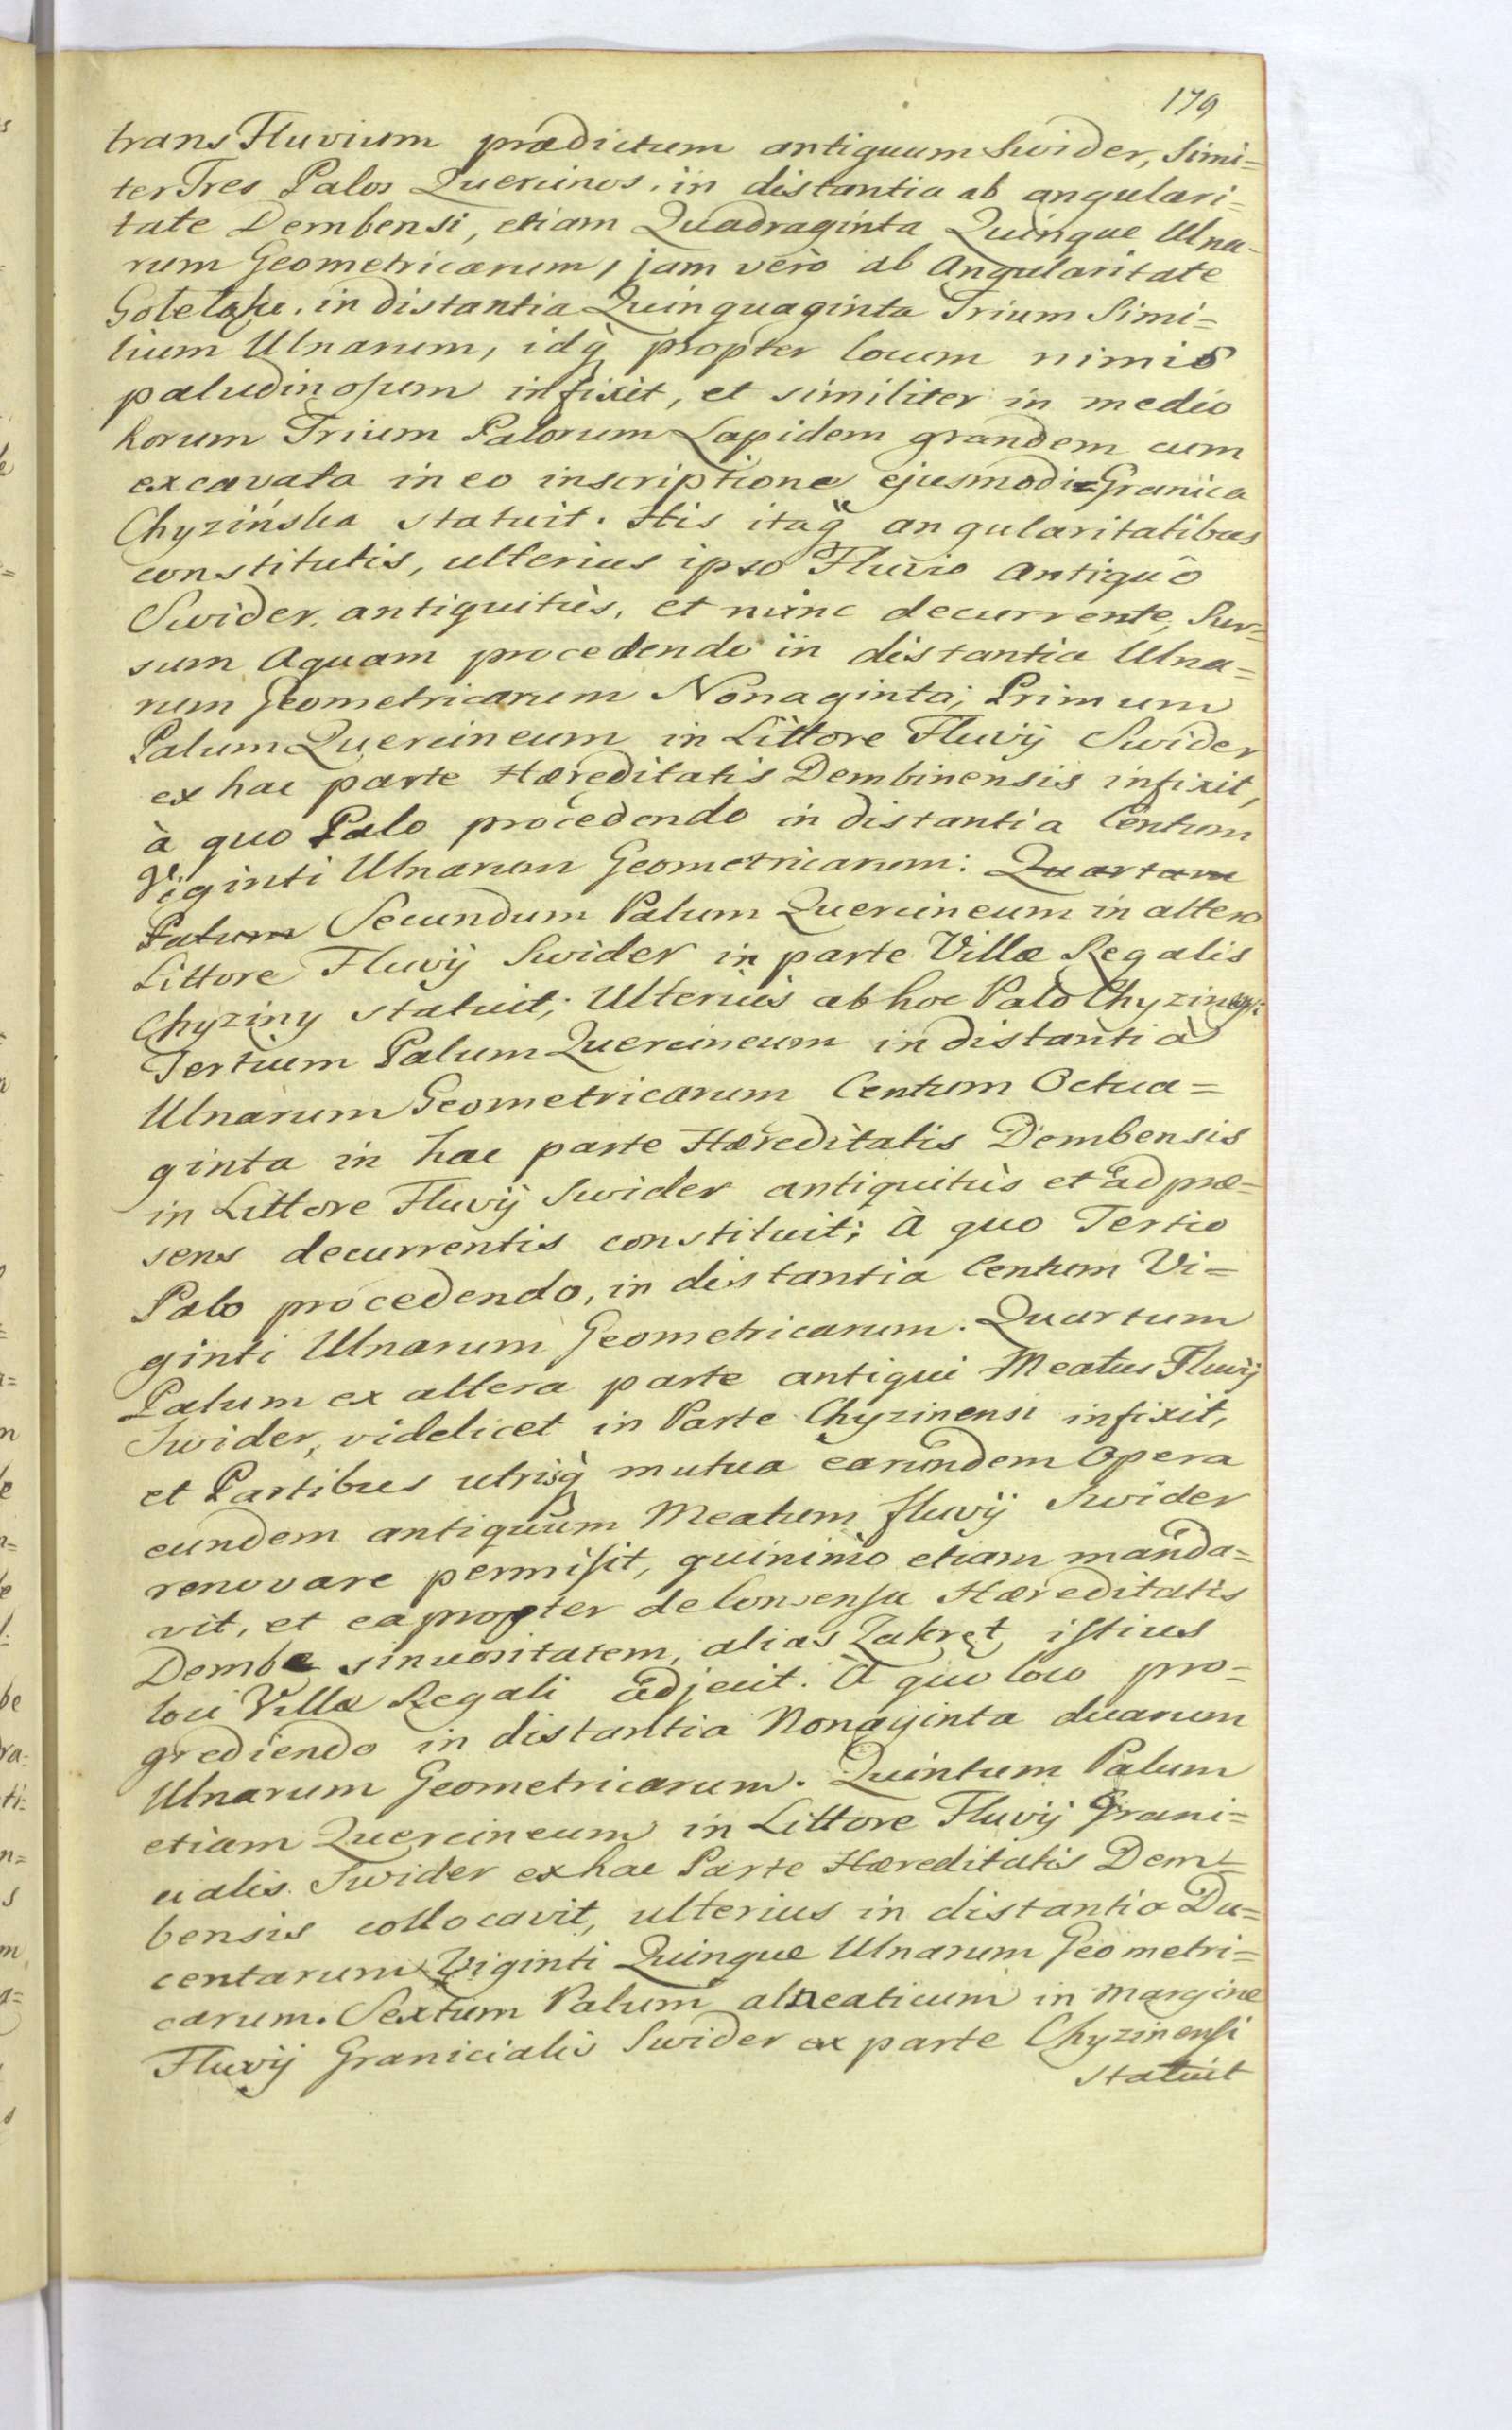 179
trans Fluvium prædictum antiquum Swider, Simi=
ter Tres Palos Quercinos, in distantia ab angulari=
tate Dembensi, etiam Quadraginta Quinque Ulna=
rum Geometricarum, jam verò ab Angularitate
in distantia Quinquaginta Trium Simi=
lium Ulnarum, idq̀ propter locum nimis
paludinosum infixit, et similiter in medio
horum Trium Palorum Lapidem grandem cum
excavata in eo inscriptione ejusmodi Granica
Chyzińska statuit. His itaq̀ angularitatibus
constitutis, ulterius ipso Fluvio Antiquô
Swider, antiquitùs, et nunc decurrente, Sur=
sum Aquam procedendo in distantia Ulna=
rum Geometricarum Nonaginta; Primum
Palum Quercineum in Littore Fluvij Swider
ex hac parte Hæreditatis Dembinensis infixit,
à quo Palo procedendo in distantia Centum
Viginti Ulnarum Geometricarum: Quartum
Palum Secundum Palum Quercineum in altero
Littore Fluvij Swider in parte Villæ Regalis
Chyziny statuit; Ulterius ab hoc Palo
Tertium Palum Quercineum in distantià
Ulnarum Geometricarum Centum Octua=
ginta in hac parte Hæreditatis Dembensis
in Littore Fluvij Swider antiquitùs et ad præ=
sens decurrentis constituit; à quo Tertio
Palo procedendo, in distantia Centum Vi=
ginti Ulnarum Geometricarum. Quartum
Palum ex altera parte antiqui Meatus Fluvij
Swider, videlicet in Parte Chyzinensi infixit,
et Partibus utrisq̀ mutua earundem Opera
eundem antiquum Meatum fluvij Swider
renovare permisit, quinimò etiam manda=
vit, et ea propter de Consensu Hæreditatis
Dembe sinuositatem, alias Zakręt istius
loci Villæ Regali adjecit. à quo loco pro=
grediendo in distantia Nonaginta duarum
Ulnarum Geometricarum. Quintum Palum
etiam Quercineum in Littore Fluvij Grani=
cialis Swider ex hac Parte Hæreditatis Dem=
bensis collocavit, ulterius in distantia Du=
centarum Viginti Quinque Ulnarum Geometri=
carum. Sextum Palum alneaticum in margine
Fluvij Granicialis Swider ex parte Chyzinensi
statuit